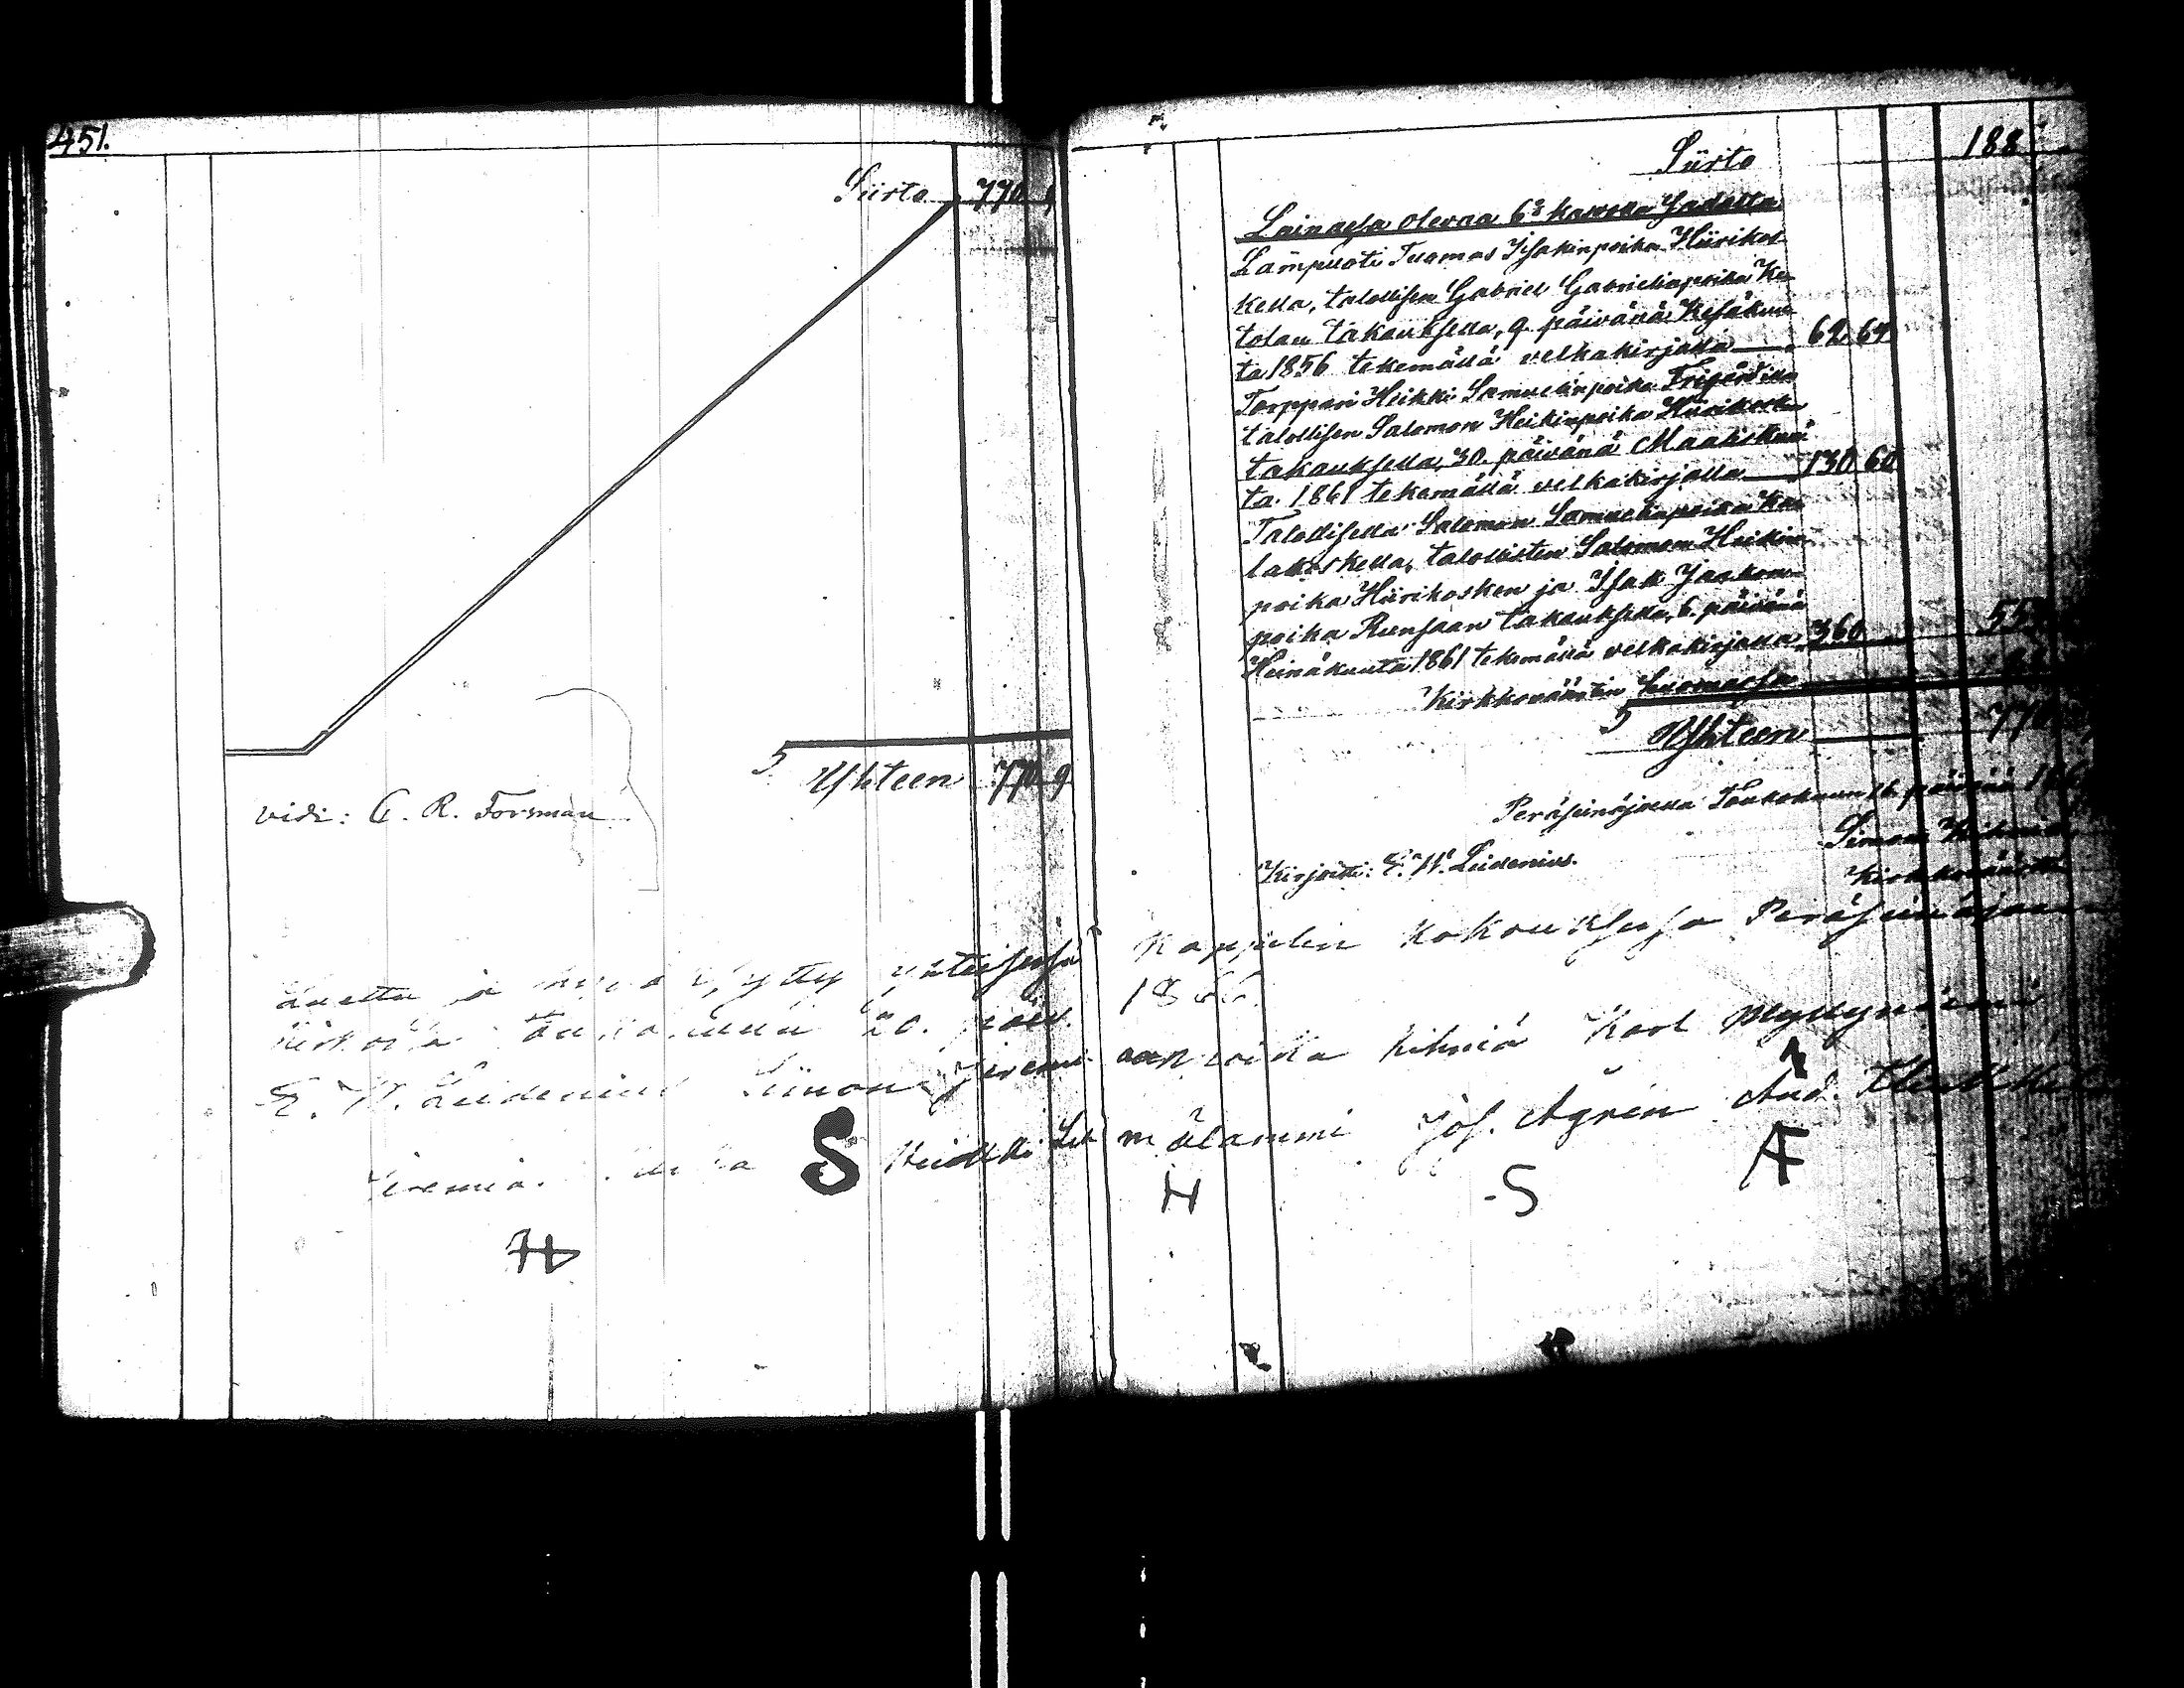 451.
Siirto 770 9
5 Yhteen 770 9
vidi: C. R. Forsman
Siirto 188
Lainassa olevaa 6% kasvolla Sadalta
Lampuoti Tuomas Isakinpoika Hiirikos-
kella, talollisen Gabriel Gabrielinpoika Ke-
tolan takauksella, 9. päivänä Kesäkuu-
ta 1856 tekemällä velkakirjalla 62 64
Torppari Heikki Samuelinpoika
talollisen Salomon Heikinpoika Hiirikosken
takauksella, 30. päivänä Maaliskuu-
ta. 1861 tekemällä velkakirjalla 130 60
Talollisella Salomon Samuelinpoika Ka-
lakoskella, talollisten Salomon Heikin-
poika Hiirikosken ja Isak Jaakon-
poika Runsaan takauksella, 6. päivänä
Heinäkuuta 1861 tekemällä velkakirjalla 360
Kirkkoväärtin huomassa
5 Yhteen 770
Peräseinäjoella Toukokuun 16 päivänä
Simon
Kirjoitti: E. W. Lidenius.
Kirkkoväärti
ja yhteisessä Kappelin Kokouksessa Peräseinäjoen
20. päiv.
E. W. Lidenius Simon Jeremiaanpoika Kihniä Karl Myllyniemi
Jeremia S Heikki Lehmälammi Jos. Ågrén And.
H H S AF